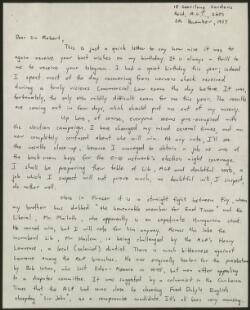 18 Geerilong Gardens
Reid, A.C.T., 2601
5th December, 1977
Dear Sir Robert,
This is just a quick letter to say how nice it was to
again receive your best wishes on my birthday. It is always a thrill to
me to receive your telegram. I had a quiet birthday this year; indeed
I spent most of the day recovering from nervous shock received
during a fairly vicious Commercial Law exam the day before. It was,
fortunately, the only one really difficult exam for me this year. The results
are coming out in four days, which should put me out of my misery.
Up here, of course, everyone seems pre-occupied with
the election campaign. I have changed my mind several times, and am
now completely confused about who will win. At any rate, I'll see
the results close-up, because I managed to obtain a job as one of
the back-room boys for the 0-10 network's election night coverage.
I shall be preparing their table of Lib, ALP and doubtful seats, a
job which I suspect will not prove much, as doubtful will, I suspect,
do rather well.
Here in Fraser it is a straight fight between Fry, whom
my brother has dubbed "the honourable member for East Timor" and the
Liberal, Mr
who apparently is an
Hungarian count.
He cannot win, but I will vote for him anyway. Across the lake the
incumbent Lib, Mr Haslem, is being challenged by the ALP's Henry
Lawrence, a local (colonial) dentist. There is much bitterness against
between
the ALP branches. He was originally beaten for the preselection
by Bob Whan, who lost Eden-Monaro in 1975, but won after appealing
to a disputes committee. It was suggested by a columnist in the Canberra
Times that the ALP had come close to choosing Fred Daly's English
sheepdog "Sir John", as a compromise candidate. It's all been very amusing.